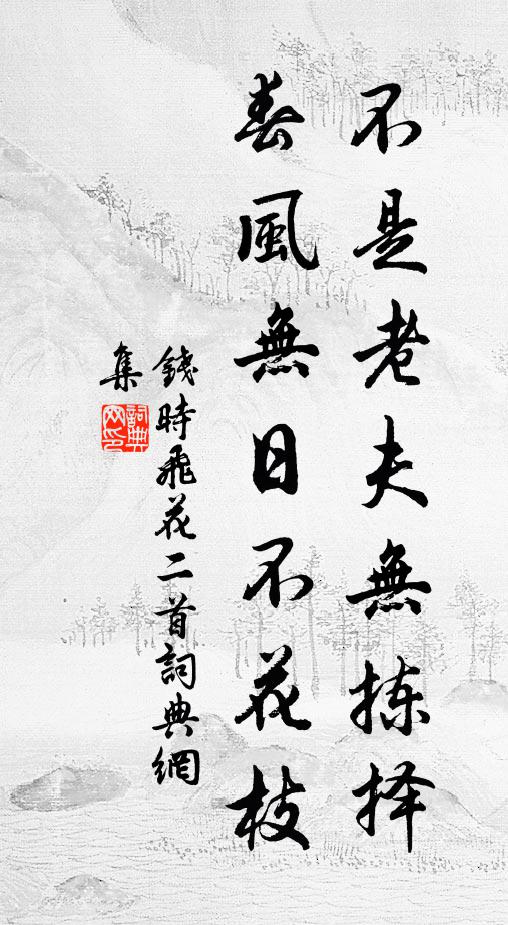 不是老夫無拣择
春風無日不花枝
錢時飛花二首詞典網
集
詞典
网印